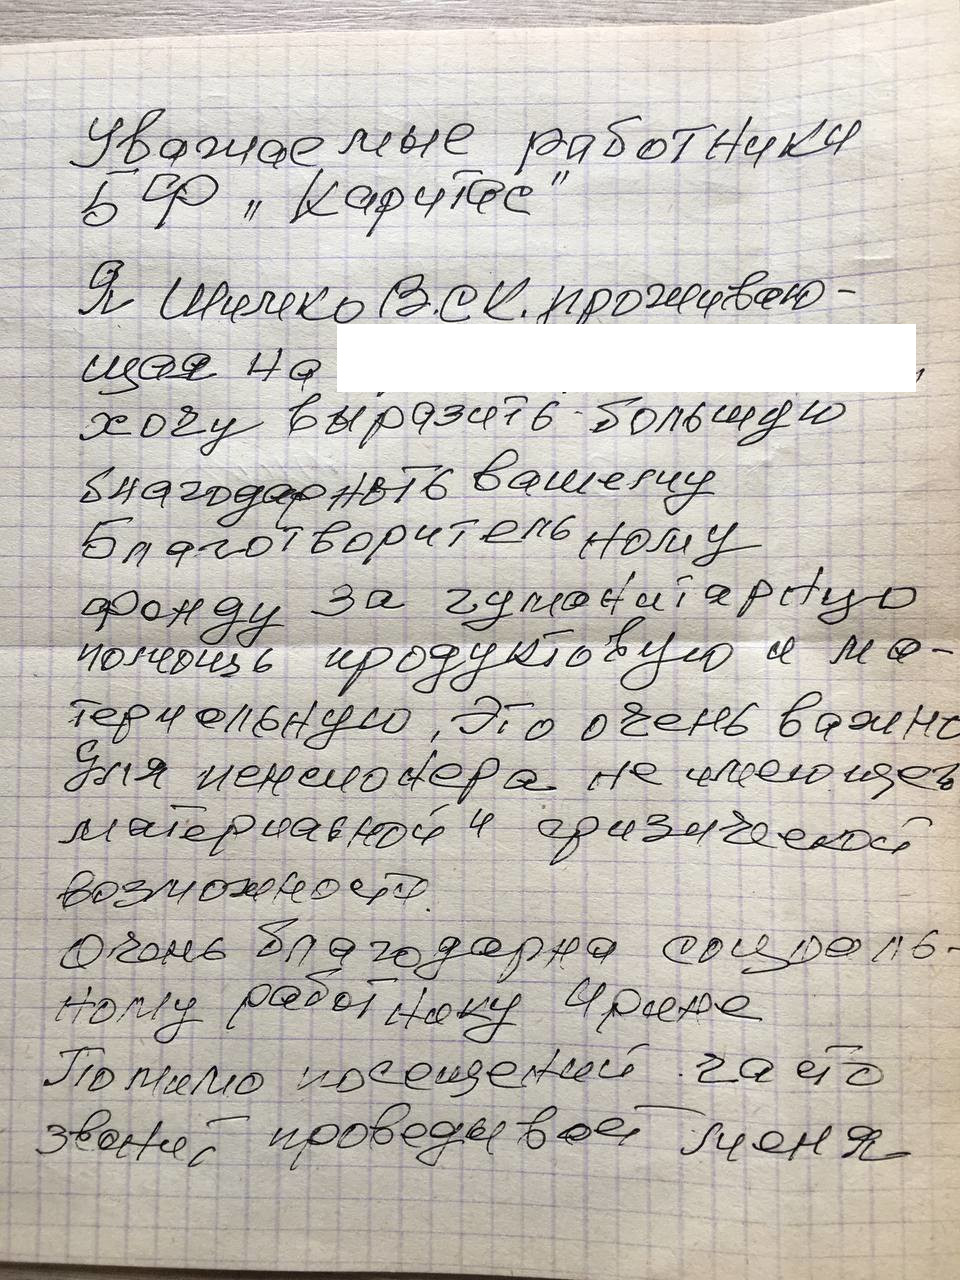 Уважаемые работники
БФ „Каритас"
Я Шимко В.С.К. проживаю-
щая на
хочу выразить большую
благодарность вашему
Благотворительному
фонду за гуманитарную
помощь продуктовую и ма-
териальную, Это очень важно
Для пенсионера не имеющей
материальной и физической
возможности.
Очень благодарна социаль-
ному работнику Ирине
Помимо посещений часто
звонит проведывает меня